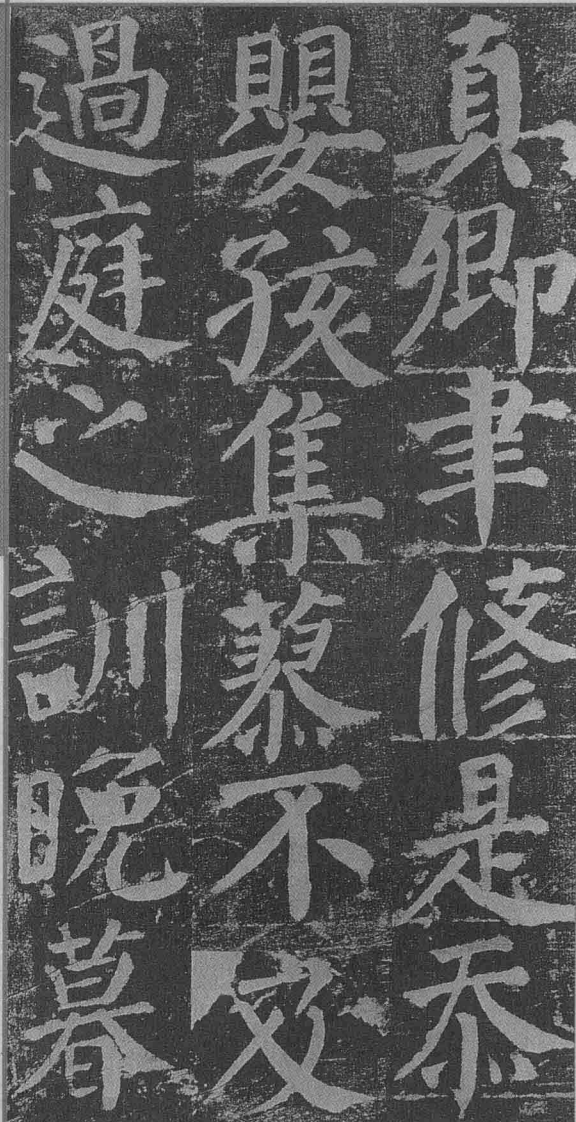 真卿聿修是忝
嬰孩集蓼不及
過庭之訓晚暮